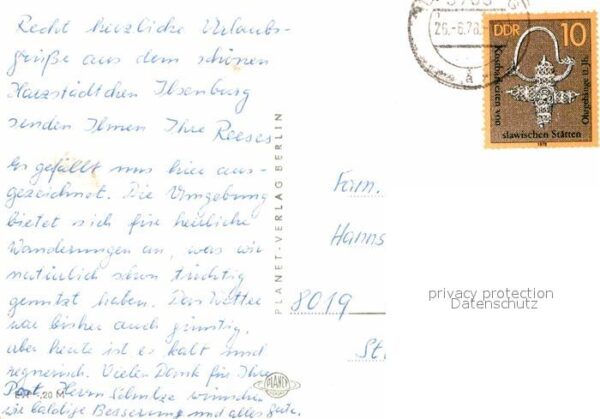 Recht herzliche Urlaubs-
grüße aus dem schönen
Harzstädtchen Ilsenburg
senden Ihnen Ihre Reeses
Es gefällt uns hier aus-
gezeichnet. Die Umgebung
bietet sich für herrliche
Wanderungen an, was wir
natürlich schon tüchtig
genutzt haben. Das Wetter
war bisher auch günstig,
aber heute ist es kalt und
regnerisch. Vielen Dank für Ihre
Post, Herrn Schulze wünschen
wir baldige Besserung und alles Gute.
-,20 M
PLANET-VERLAG BERLIN
PLANET
26.-6.78
DDR
10
Kostbarkeiten von
slawischen Stätten
Ohrgehänge 11. Jh.
1978
Fam.
Hanns
8019
St
privacy protection
Datenschutz